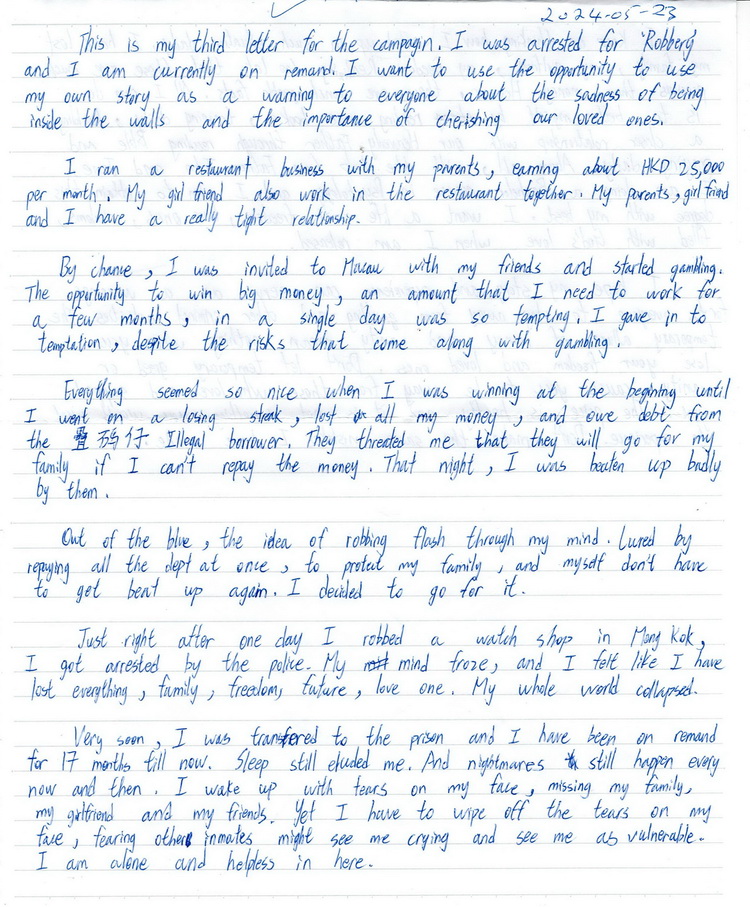 2024-05-23
This is my third letter for the campagin. I was arrested for 'Robbery'
and I am currently on remand. I want to use the opportunity to use
my own story as a warning to everyone about the sadness of being
inside the walls and the importance of cherishing our loved ones.
I ran a restaurant business with my parents, earning about HKD 25,000
per month. My girl friend also work in the restaurant together. My parents, girl friend
and I have a really tight relationship.
By chance, I was invited to Macau with my friends and started gambling.
The opportunity to win big money, an amount that I need to work for
a few months, in a single day was so tempting. I gave in to
temptation, despite the risks that come along with gambling.
Everything seemed so nice when I was winning at the begining until
I went on a losing streak, lost all my money, and owe debt from
the 疊碼仔 Illegal borrower. They threated me that they will go for my
family if I can't repay the money. That night, I was beaten up badly
by them.
Out of the blue, the idea of robbing flash through my mind. Lured by
repaying all the dept at once, to protect my family, and myself don't have
to get beat up again. I decided to go for it.
Just right after one day I robbed a watch shop in Mong Kok,
I got arrested by the police. My mind froze, and I felt like I have
lost everything, family, freedom, future, love one. My whole world collapsed.
Very soon, I was transfered to the prison and I have been on remand
for 17 months till now. Sleep still eluded me. And nightmares still happen every
now and then. I wake up with tears on my face, missing my family,
my girlfriend and my friends. Yet I have to wipe off the tears on my
face, fearing other inmates might see me crying and see me as vulnerable.
I am alone and helpless in here.